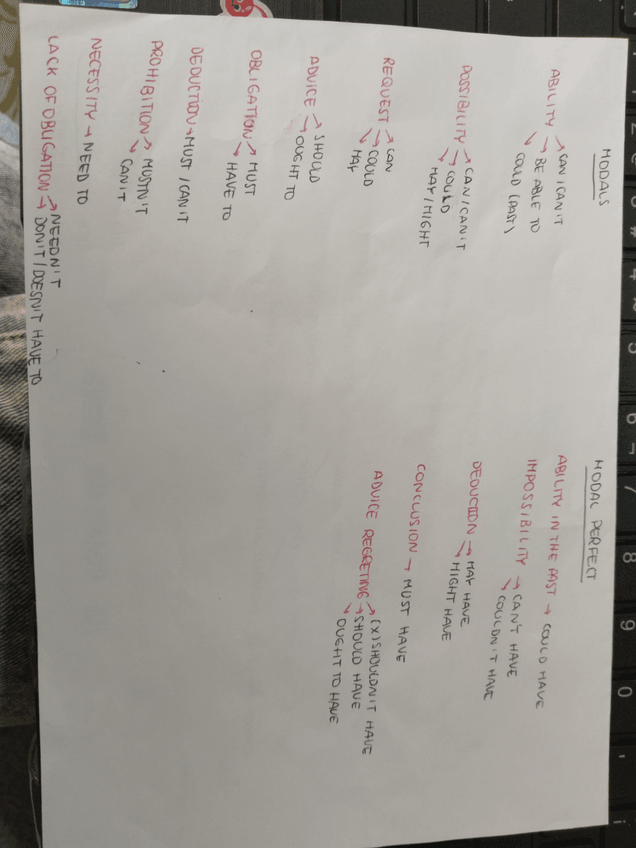 MODALS
ABILITY → CAN/CAN'T
→ BE ABLE TO
→ COULD (PAST)
POSSIBILITY → CAN/CAN'T
→ COULD
→ MAY/MIGHT
REQUEST → CAN
→ COULD
→ MAY
ADVICE → SHOULD
→ OUGHT TO
OBLIGATION → MUST
→ HAVE TO
DEDUCTION → MUST/CAN'T
PROHIBITION → MUSTN'T
→ CAN'T
NECESSITY → NEED TO
LACK OF OBLIGATION → NEEDN'T
→ DON'T/DOESN'T HAVE TO
MODAL PERFECT
ABILITY IN THE PAST → COULD HAVE
IMPOSSIBILITY → CAN'T HAVE
→ COULDN'T HAVE
DEDUCTION → MAY HAVE
→ MIGHT HAVE
CONCLUSION → MUST HAVE
ADVICE REGRETING → (X) SHOULDN'T HAVE
→ SHOULD HAVE
→ OUGHT TO HAVE